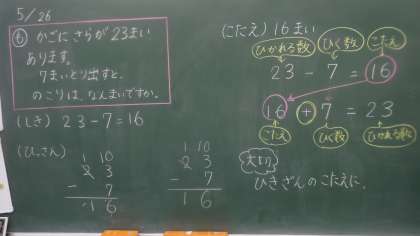 5/26
も かごに さらが 23まい
あります。
7まいとり出すと、
のこりは、なんまいですか。
(しき) 23-7=16
(ひっさん)
1 10
2 3
- 7
1 6
1 10
2 3
- 7
1 6
(こたえ) 16まい
ひかれる数 ひく数 こたえ
23 - 7 = 16
16 + 7 = 23
こたえ ひく数 ひかれる数
大切
ひきざんのこたえに、